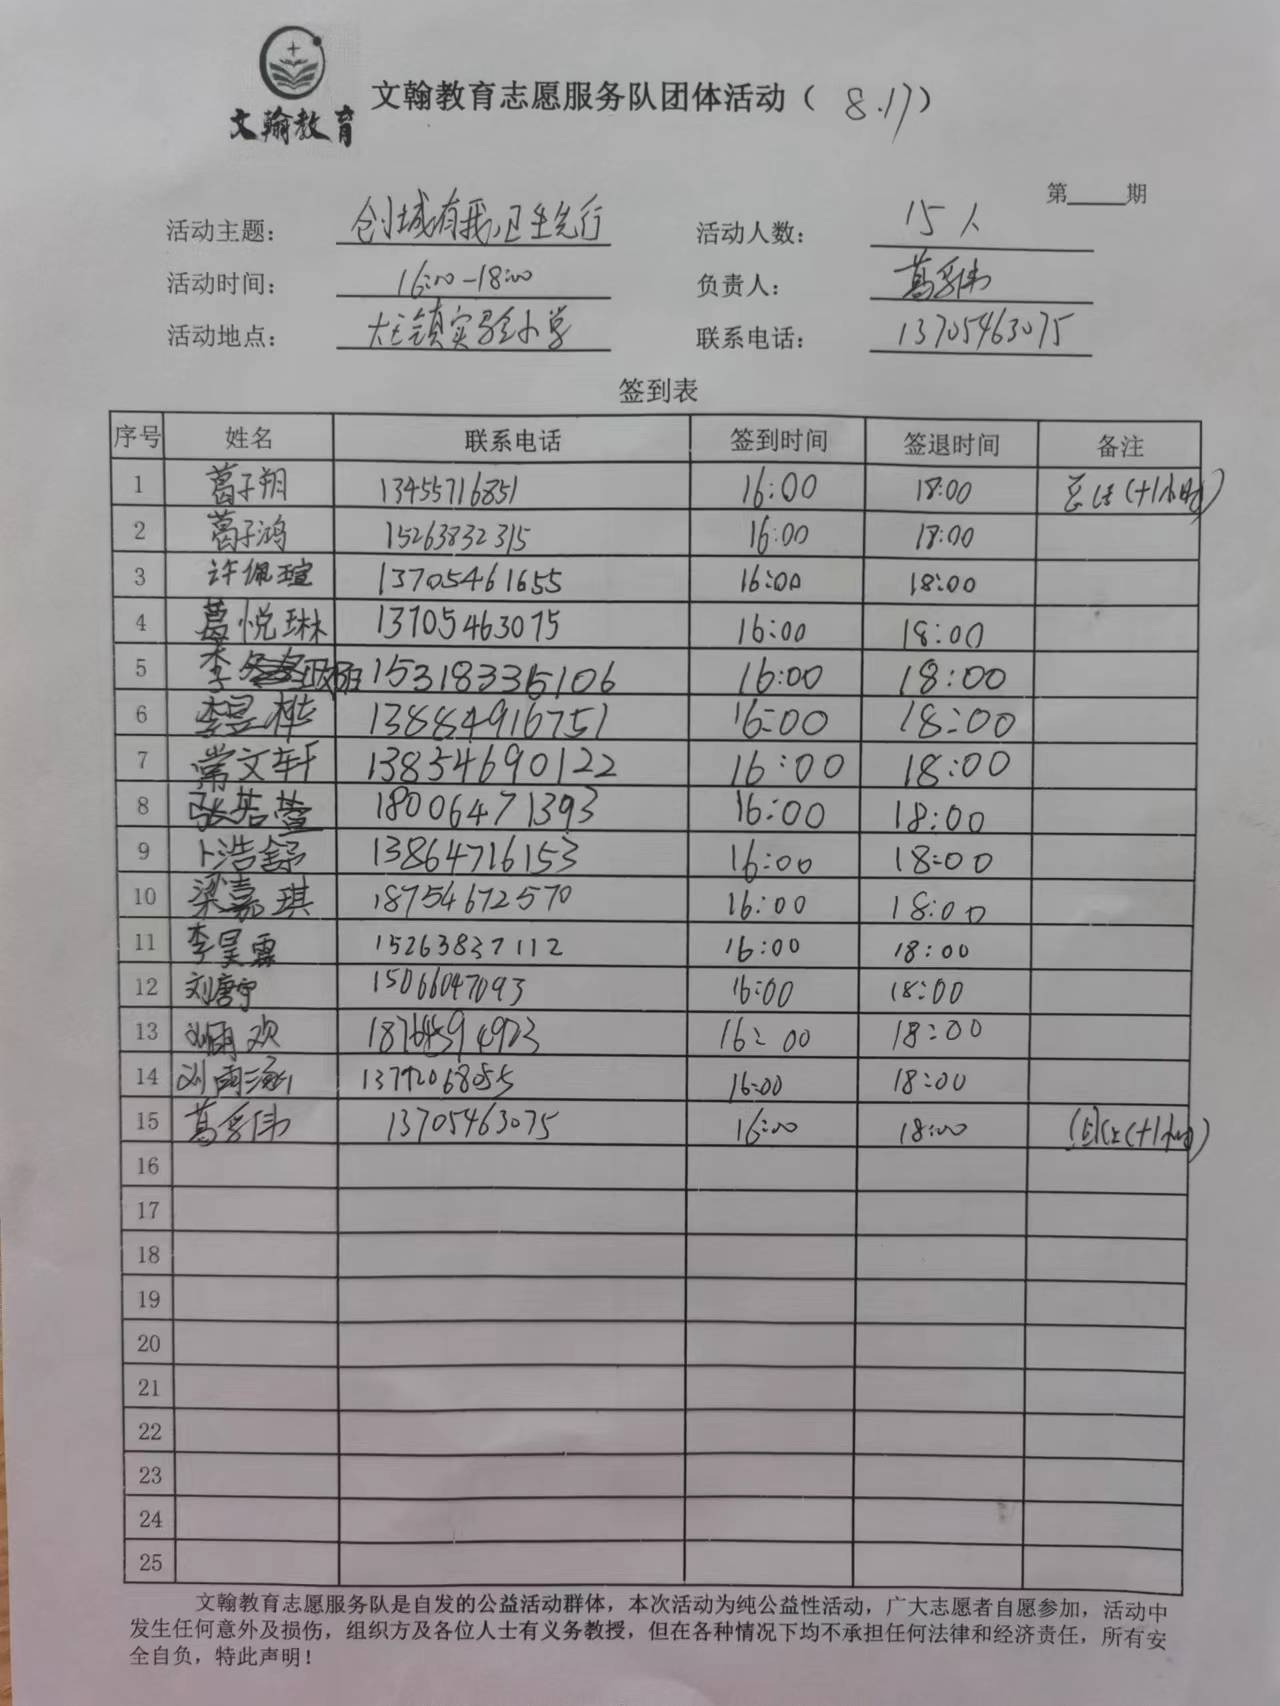 文翰教育
文翰教育志愿服务队团体活动（ 8.17）
第____期
活动主题： 创城有我,卫生先行 活动人数： 15人
活动时间： 16:00-18:00 负责人： 葛孚伟
活动地点： 大王镇实验小学 联系电话： 13705463075
签到表
序号 姓名 联系电话 签到时间 签退时间 备注
1 葛子翔 13455716851 16:00 18:00 总结(+1小时)
2 葛子鸿 15263832315 16:00 18:00
3 许佩瑄 13705461655 16:00 18:00
4 葛悦琳 13705463075 16:00 18:00
5 李 16:00 18:00
6 李昱桦 13884916751 16:00 18:00
7 常文轩 13854690122 16:00 18:00
8 张若萱 18006471393 16:00 18:00
9 卜浩舒 13864716153 16:00 18:00
10 梁嘉琪 18754672570 16:00 18:00
11 李昊霖 15263837112 16:00 18:00
12 刘唐宁 15066047093 16:00 18:00
13 欢 16:00 18:00
14 刘雨涵 16:00 18:00
15 葛孚伟 13705463075 16:00 18:00 (+1小时)
16
17
18
19
20
21
22
23
24
25
文翰教育志愿服务队是自发的公益活动群体，本次活动为纯公益性活动，广大志愿者自愿参加，活动中
发生任何意外及损伤，组织方及各位人士有义务教授，但在各种情况下均不承担任何法律和经济责任，所有安
全自负，特此声明！